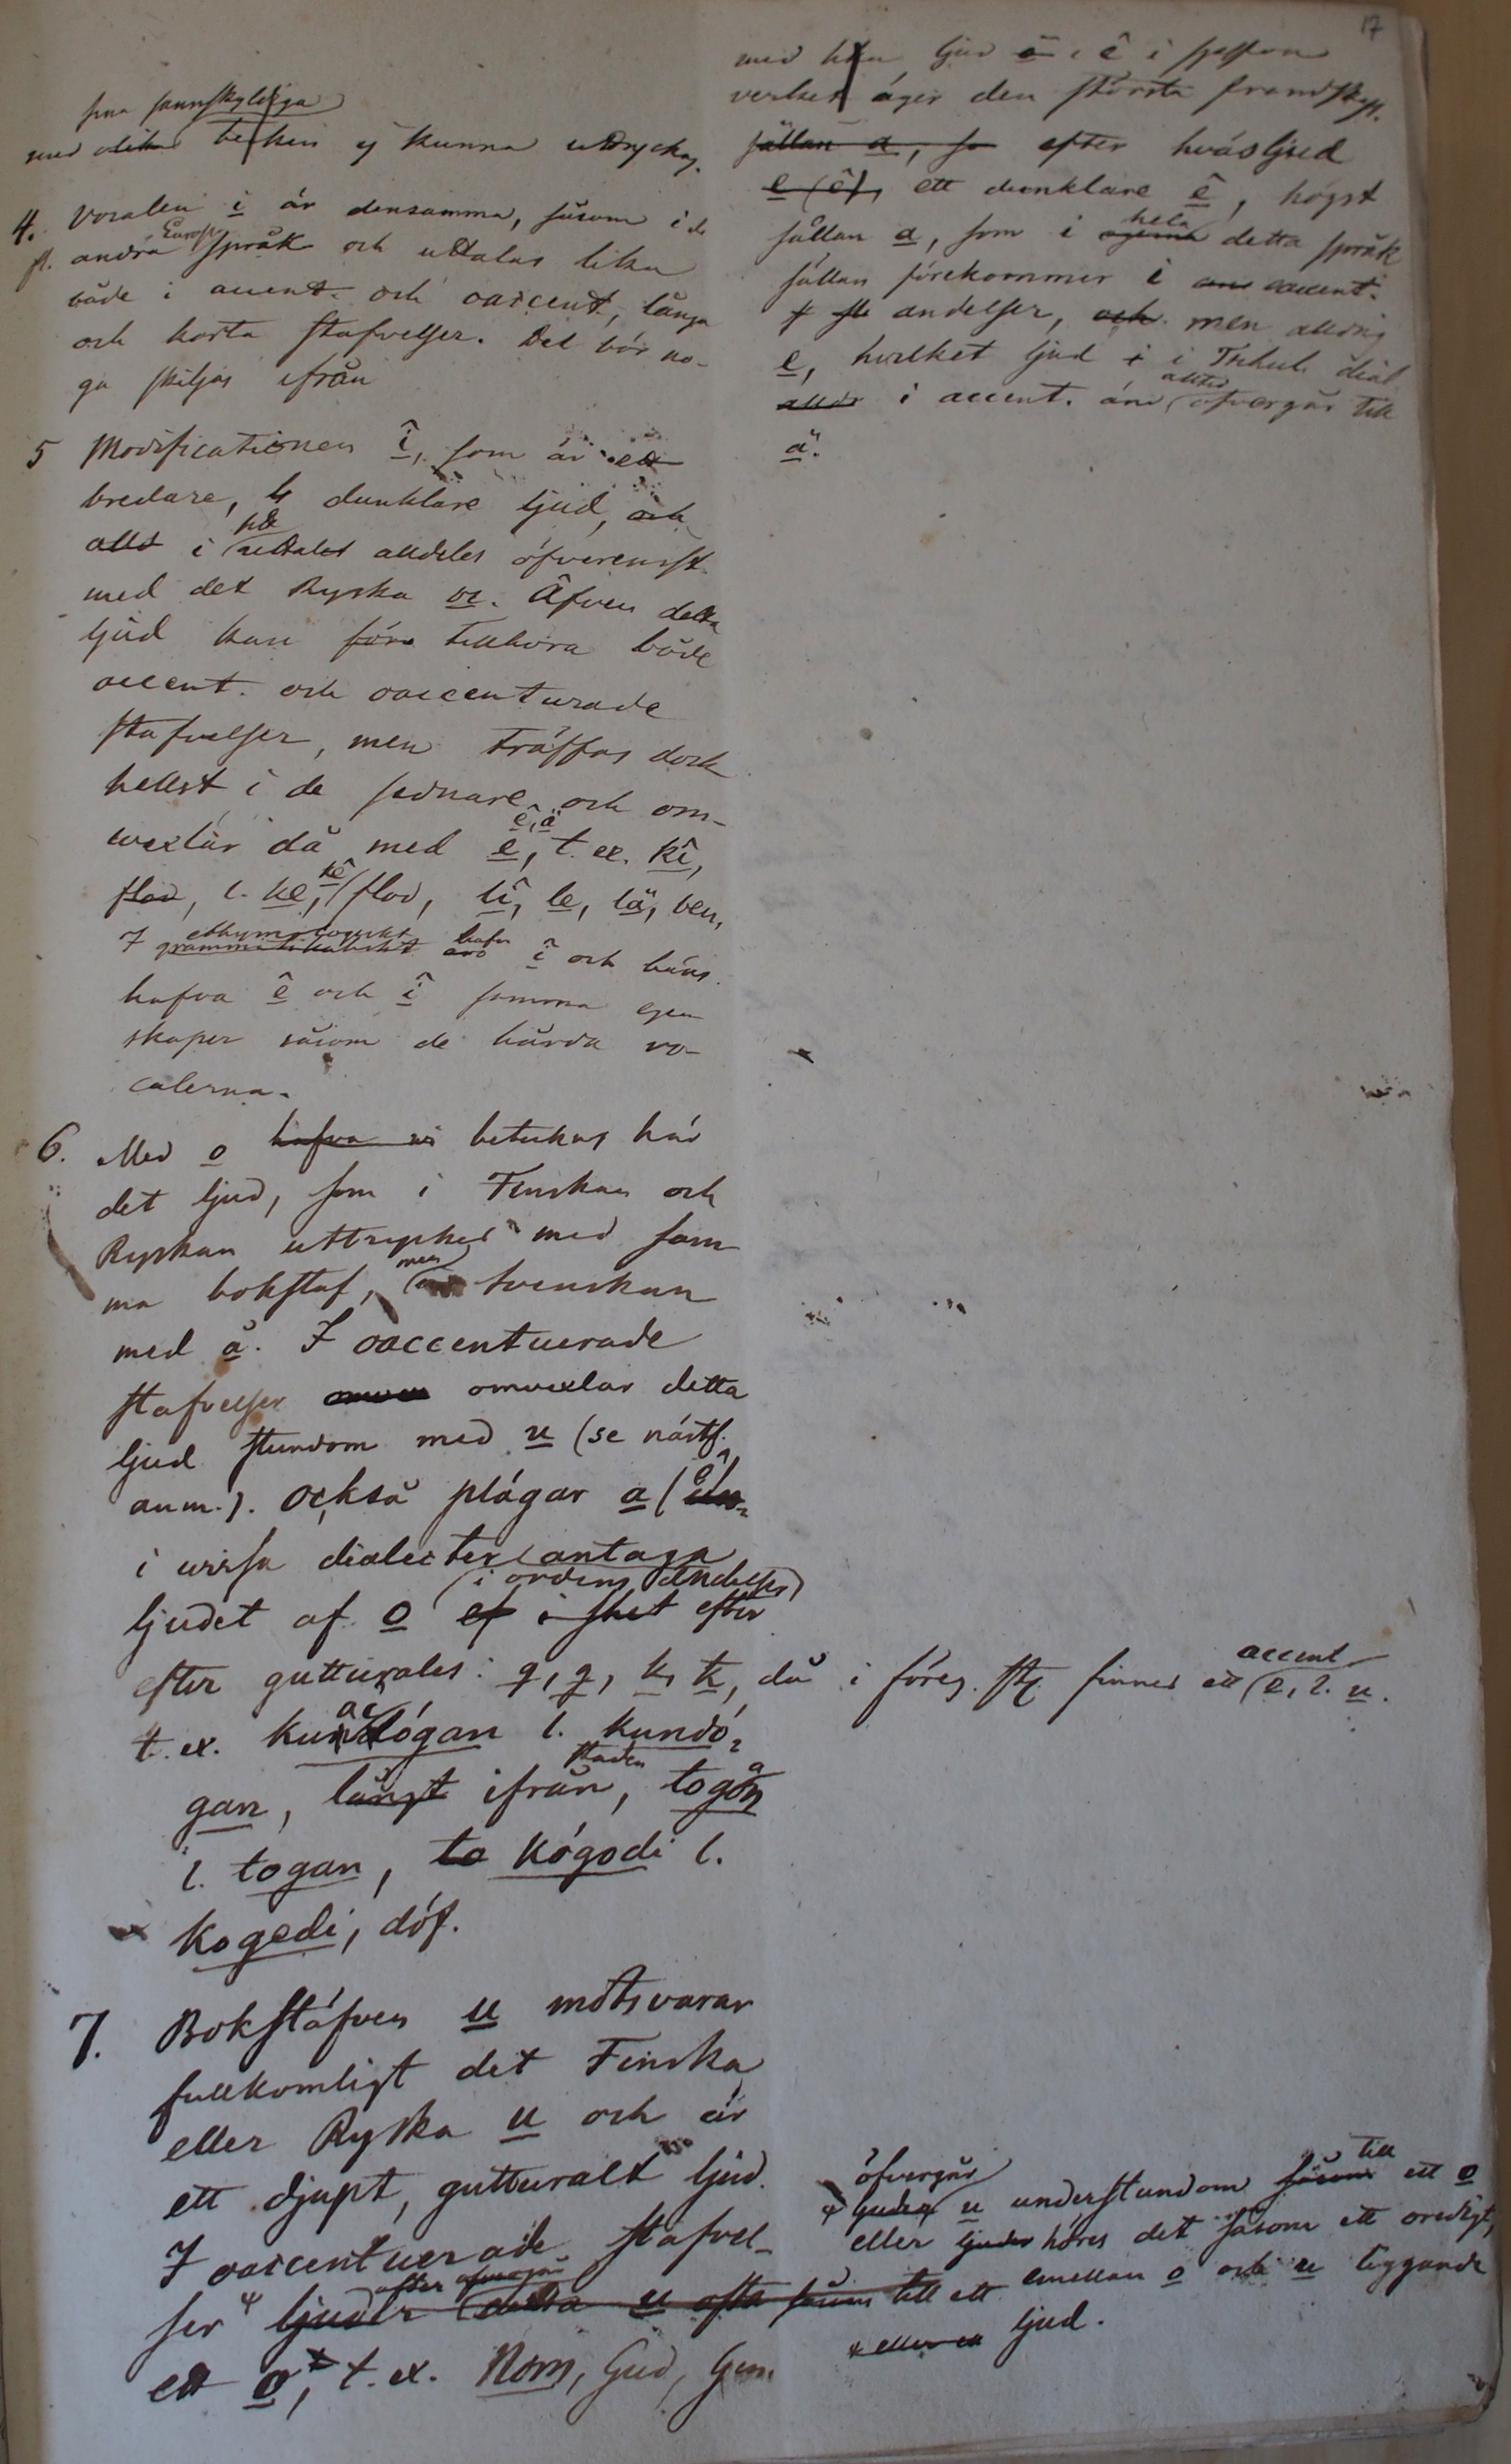 17
sina
med olika tecken ej kunna uttryckas.
4. Vocalen i är densamma, såsom i de
fl. andra Europ. språk och uttalas lika
både i accent. och oaccent, långa
och korta stafvelser. Det bör no-
ga skiljas ifrån
5 Modificationen î, som är ett
bredare, dunklare ljud, och
i uttalet alldeles öfverensst.
med det Ryska ы. Äfven detta
ljud kan före tillhöra både
accent. och oaccenturade
stafvelser, men träffas dock
helst i de sednare och om-
vexlar då med e, ê, ä, t. ex. kî,
flod, l. ke, kê, flod, lî, le, lä, ben,
I grammatikaliskt ethymologiskt î och
hafva ê och î samma egen
skaper såsom de hårda vo-
calerna.
6. Med o hafva vi betecknas här
det ljud, som i Finskan och
Ryskan uttryckes med sam
ma bokstaf, men i Svenskan
med å. I oaccentuerade
stafvelser omvexlar detta
ljud stundom med u (se nästf.
anm.). också plägar a (ê)
i vissa dialecter antaga
ljudet af o (i ordens ändelser) efter
efter gutturales: g, g, k, k, då i föreg. st. finnes ett accent o, l. u.
t. ex. kundógan l. kundó-
gan, långt ifrån, togon
l. togan, to kógodi l.
kogedi, döf.
7. Bokstäfven u motsvarar
fullkomligt det Finska
eller Ryska u och är
ett djupt, gutturalt ljud.
I oaccentuerade stafvel-
ser ljuder detta u ofta såsom till ett
ett o, t. ex. Nom, Gud, Gen.
med ljud ê i
verket äger den största frandskap.
sällan a, so efter hväsljud
e (ê), ett dunklare ê, högst
sällan a, som i hela detta språk
sällan förekommer i accent.
ändelser, och men aldrig
e, hvilket ljud i i Tschul. dial
i accent. änd. alltid öfvergår till
ä.
öfvergår
ljuder u understundom såsom till ett o
eller ljuder höres det såsom ett oredigt,
emellan o och u liggande
eller ett ljud.